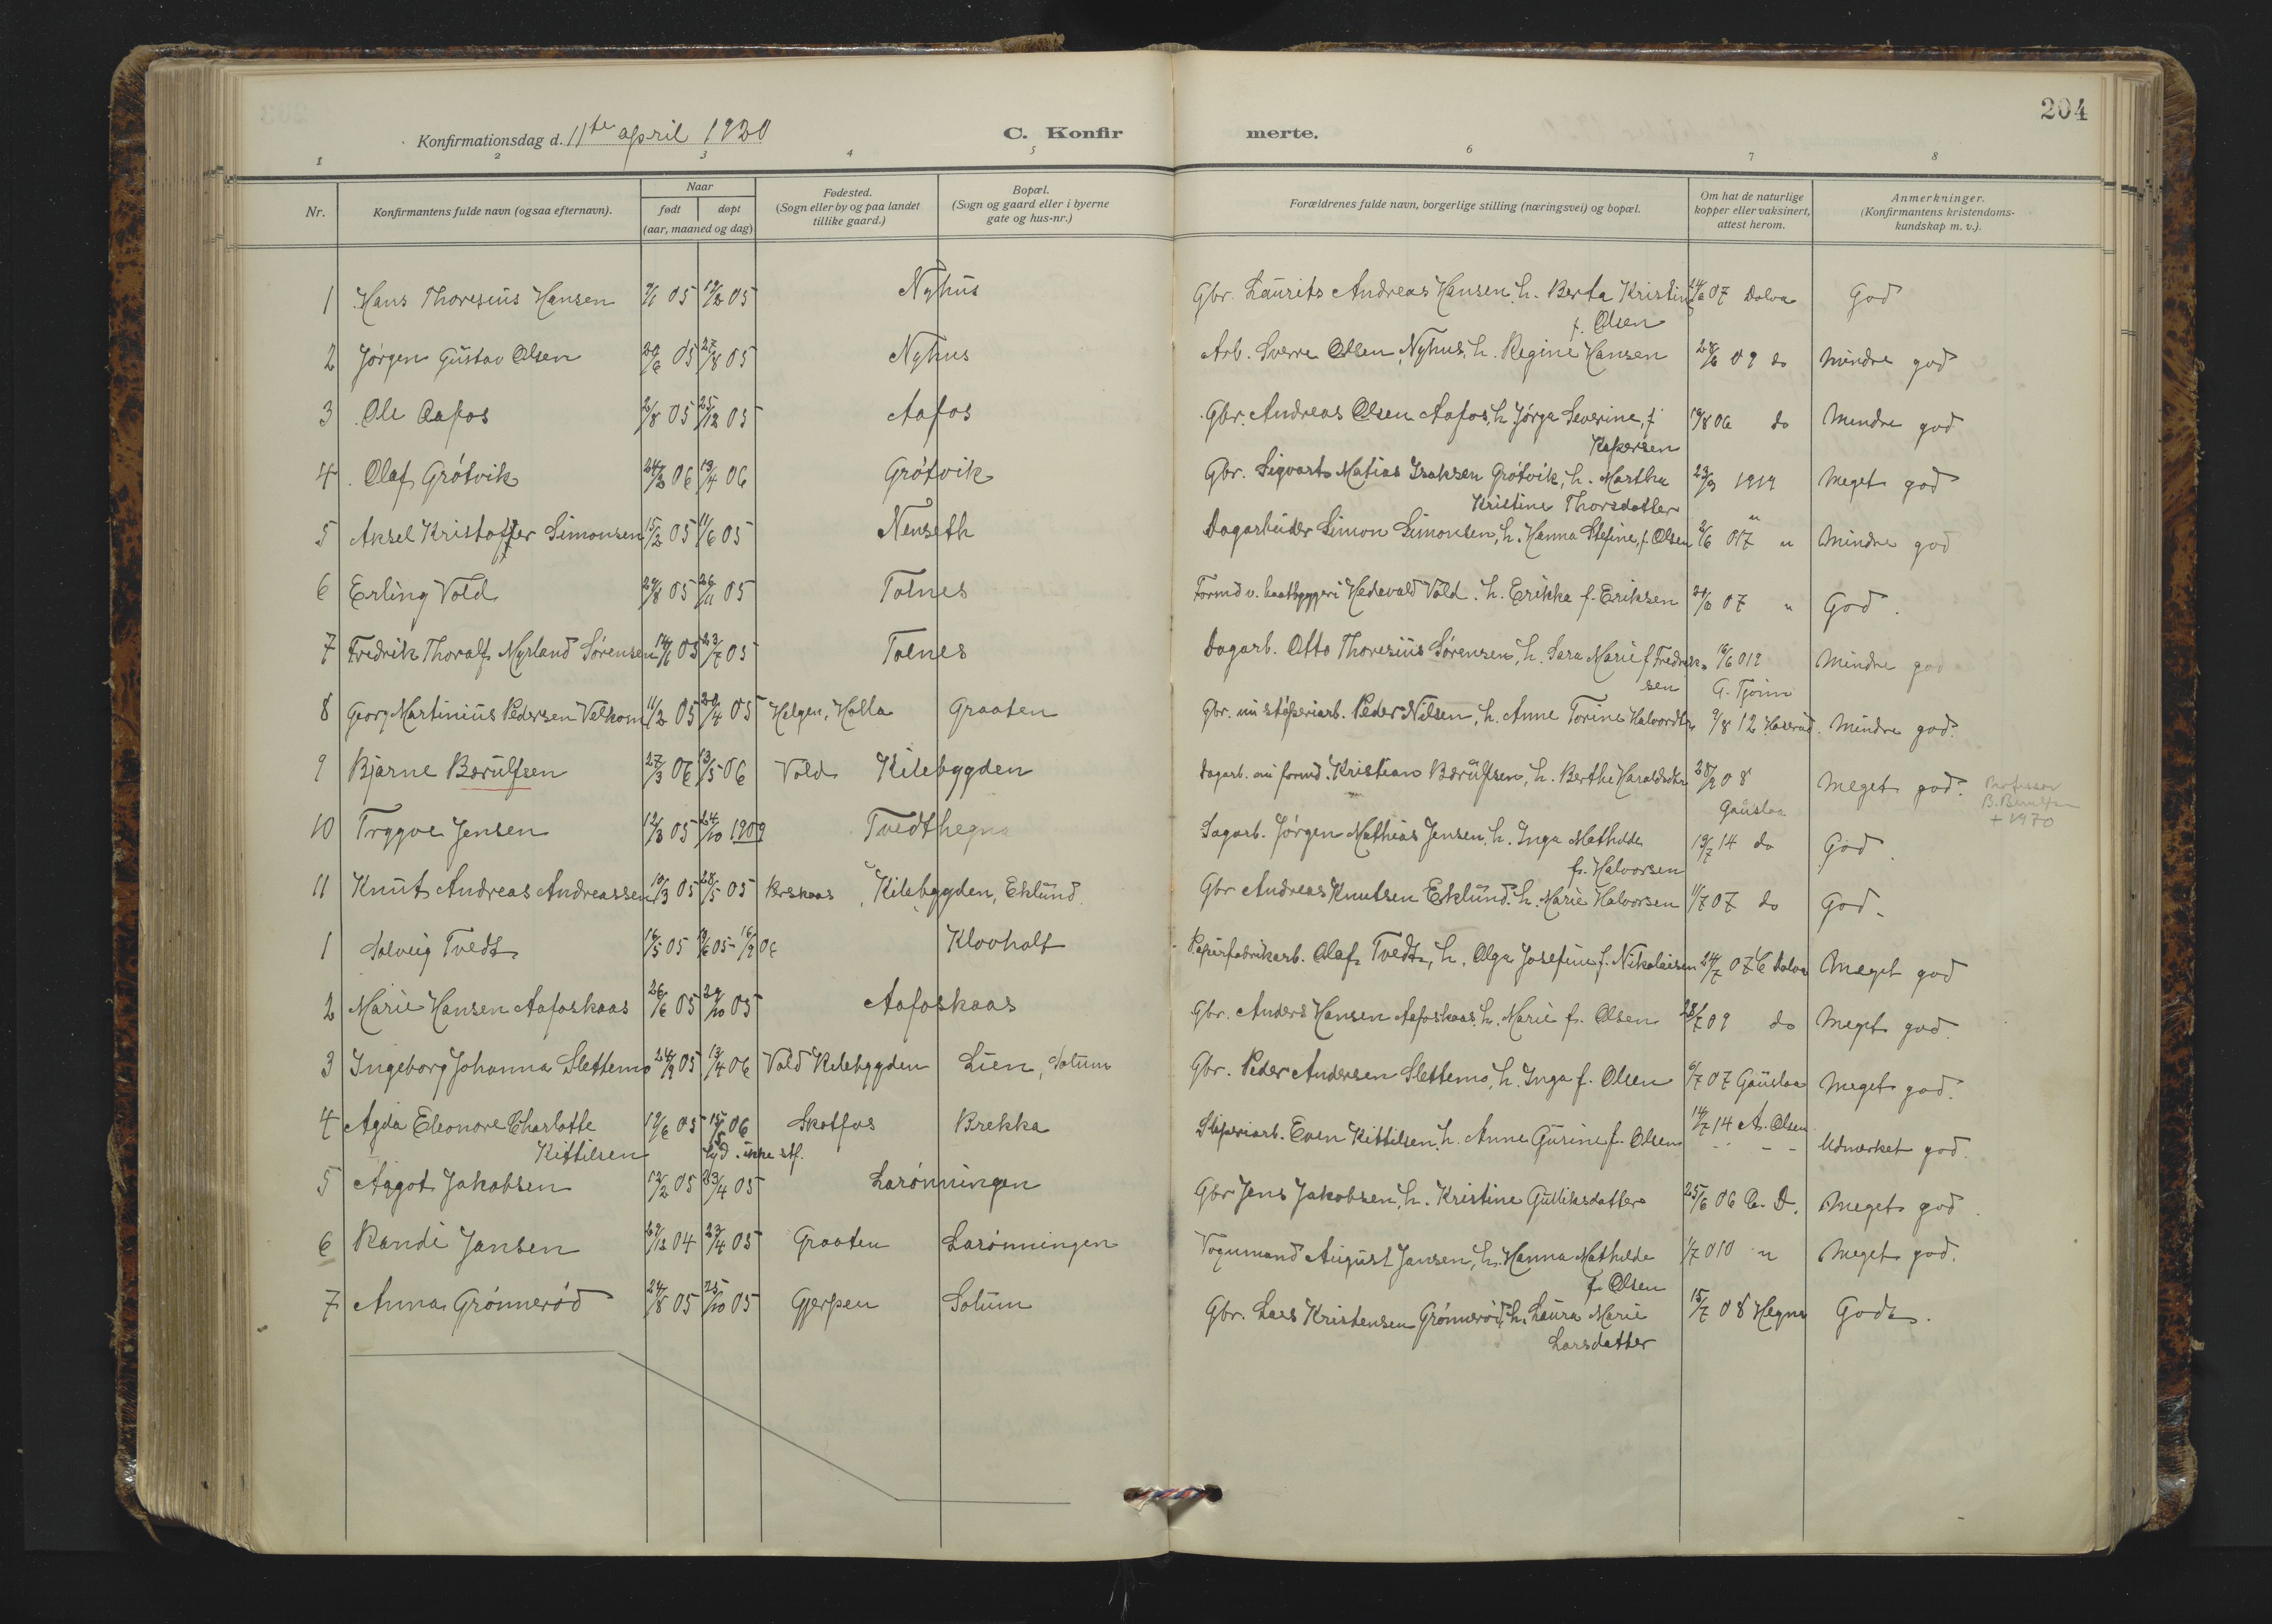 204
Konfirmationsdag d. 11te april 1920
C. Konfir merte.
1 2 3 4 5 6 7 8
Nr. Konfirmantens fulde navn (ogsaa efternavn). Naar født døpt (aar, maaned og dag) Fødested. (Sogn eller by og paa landet tillike gaard.) Bopæl. (Sogn og gaard eller i byerne gate og hus-nr.) Forældrenes fulde navn, borgerlige stilling (næringsvei) og bopæl. Om hat de naturlige kopper eller vaksinert, attest herom. Anmerkninger. (Konfirmantens kristendoms- kundskap m. v.).
1 Hans Thoresius Hansen 05 05 Nyhus Gbr. Laurits Andreas Hansen, h. Berta Kristine 07 Dolva God
f. Olsen
2 Jørgen Gustav Olsen 05 27/8 05 Nyhus Arb. Sverre Olsen, Nyhus, h. Regine Hansen 28/6 09 do Mindre god
3 Ole Aafos 05 25/12 05 Aafos Gbr. Andreas Olsen Aafos, h. Jørga Severine, f. 19/8 06 do Mindre god
4 Olaf Grøtvik 06 06 Grøtvik Gbr. Sigvart Matias Isaksen Grøtvik, h. Martha 23/9 1919 Meget god
Kristine Thorsdatter "
5 Aksel Kristoffer Simonsen 15/2 05 11/6 05 Nenseth Dagarbeider Simon Simonsen, h. Hanna Stefine, f. Olsen 017 " Mindre god
6 Erling Vold 29/8 05 26/11 05 Tolnes Formd v. baatbyggeri Hedevald Vold. h. Erikke f. Eriksen 07 " God.
7 Fredrik Thoralf Myrland Sørensen 05 23/7 05 Tolnes Dagarb. Otto Thoresius Sørensen, h. Sara Marie f Fredrik- 16/6 012 Mindre god
sen
8 Georg Martinius Pedersen 11/2 05 05 Helgen, Holla Graaten Gbr. nu sliperiarb. Peder Nilsen, h. Anne Torine Halvordtr 9/8 12 Mindre god.
9 Bjarne Berulfsen 27/3 06 13/5 06 Vold Kilebygden Dagarb. nu formd. Kristian Berulfsen, h. Berthe Haraldsdtr 08 Meget god.
Gauslaa
Professor
B. Berulfsen
+ 1970
10 Trygve Jensen 12/3 05 24/10 1909 Tvedthegna Dagarb. Jørgen Mathias Jensen, h. Inga Mathilde 19/7 14 do God.
f. Halvorsen
11 Knut Andreas Andreassen 10/3 05 28/5 05 Kilebygden, Eklund. Gbr Andreas Knutsen Eklund. h. Marie Halvorsen 11/7 07 do God.
1 Solveig Tvedt 16/5 05 05 Klovholt Papirfabrikarb. Olaf Tvedt, h. Olga Josefine f. Nikolaisen 24/7 07 C Dolva Meget god
2 Marie Hansen Aafoskaas 26/6 05 29/10 05 Aafoskaas Gbr. Anders Hansen Aafoskaas, h. Marie f. Olsen 28/7 09 do Meget god.
3 Ingeborg Johanna Slettemo 24/9 05 06 Vold Kilebygden Lien, Solum Gbr. Peder Andersen Slettemo, h. Inga f. Olsen 6/7 07 Gauslaa Meget god.
4 Agda Eleonore Charlotte 19/6 05 06 Skotfos Brekka Sliperiarb. Even Kittilsen, h. Anne Gurine f. Olsen 14/7 14 A. Olsen Udmerket god.
Kittilsen
5 Aagot Jakobsen 12/2 05 23/4 05 Larønningen Gbr Jens Jakobsen, h. Kristine Gulliksdatter 25/6 06 C. D. Meget god.
6 Randi Jansen 29/12 04 23/4 05 Graaten Larønningen Togmand August Jansen, h. Hanna Mathilde 1/7 010 " Meget god.
f. Olsen
7 Anna Grønnerød 24/8 05 25/10 05 Gjerpen Solum Gbr. Lars Kristensen Grønnerød, h. Laura Marie 15/7 08 Hegna God.
Larsdatter